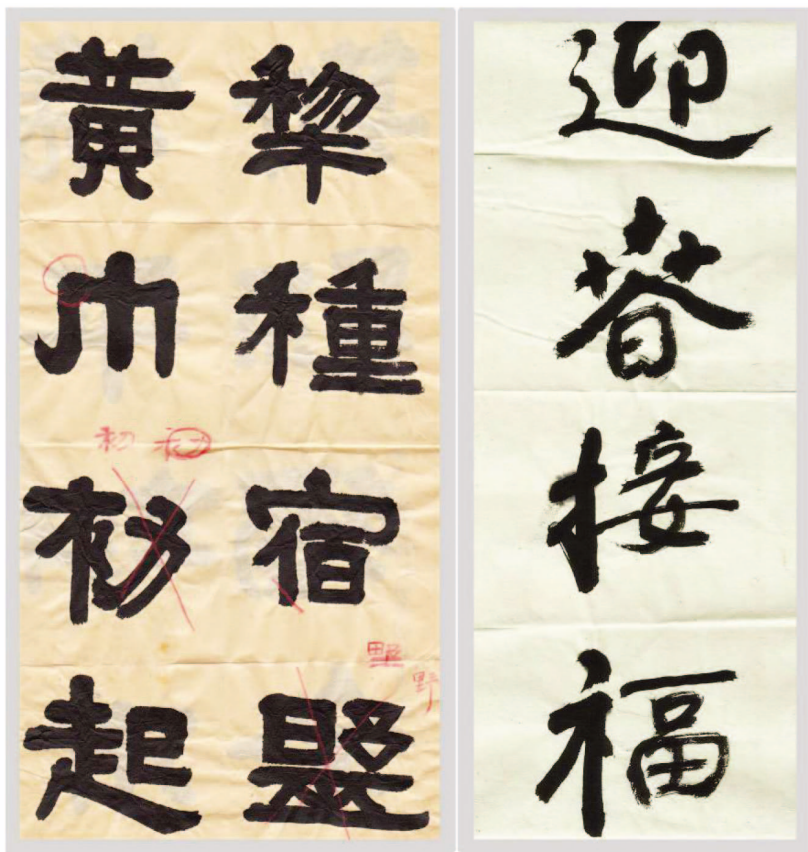 犂種宿野
黄巾初起
初
野
迎春接福